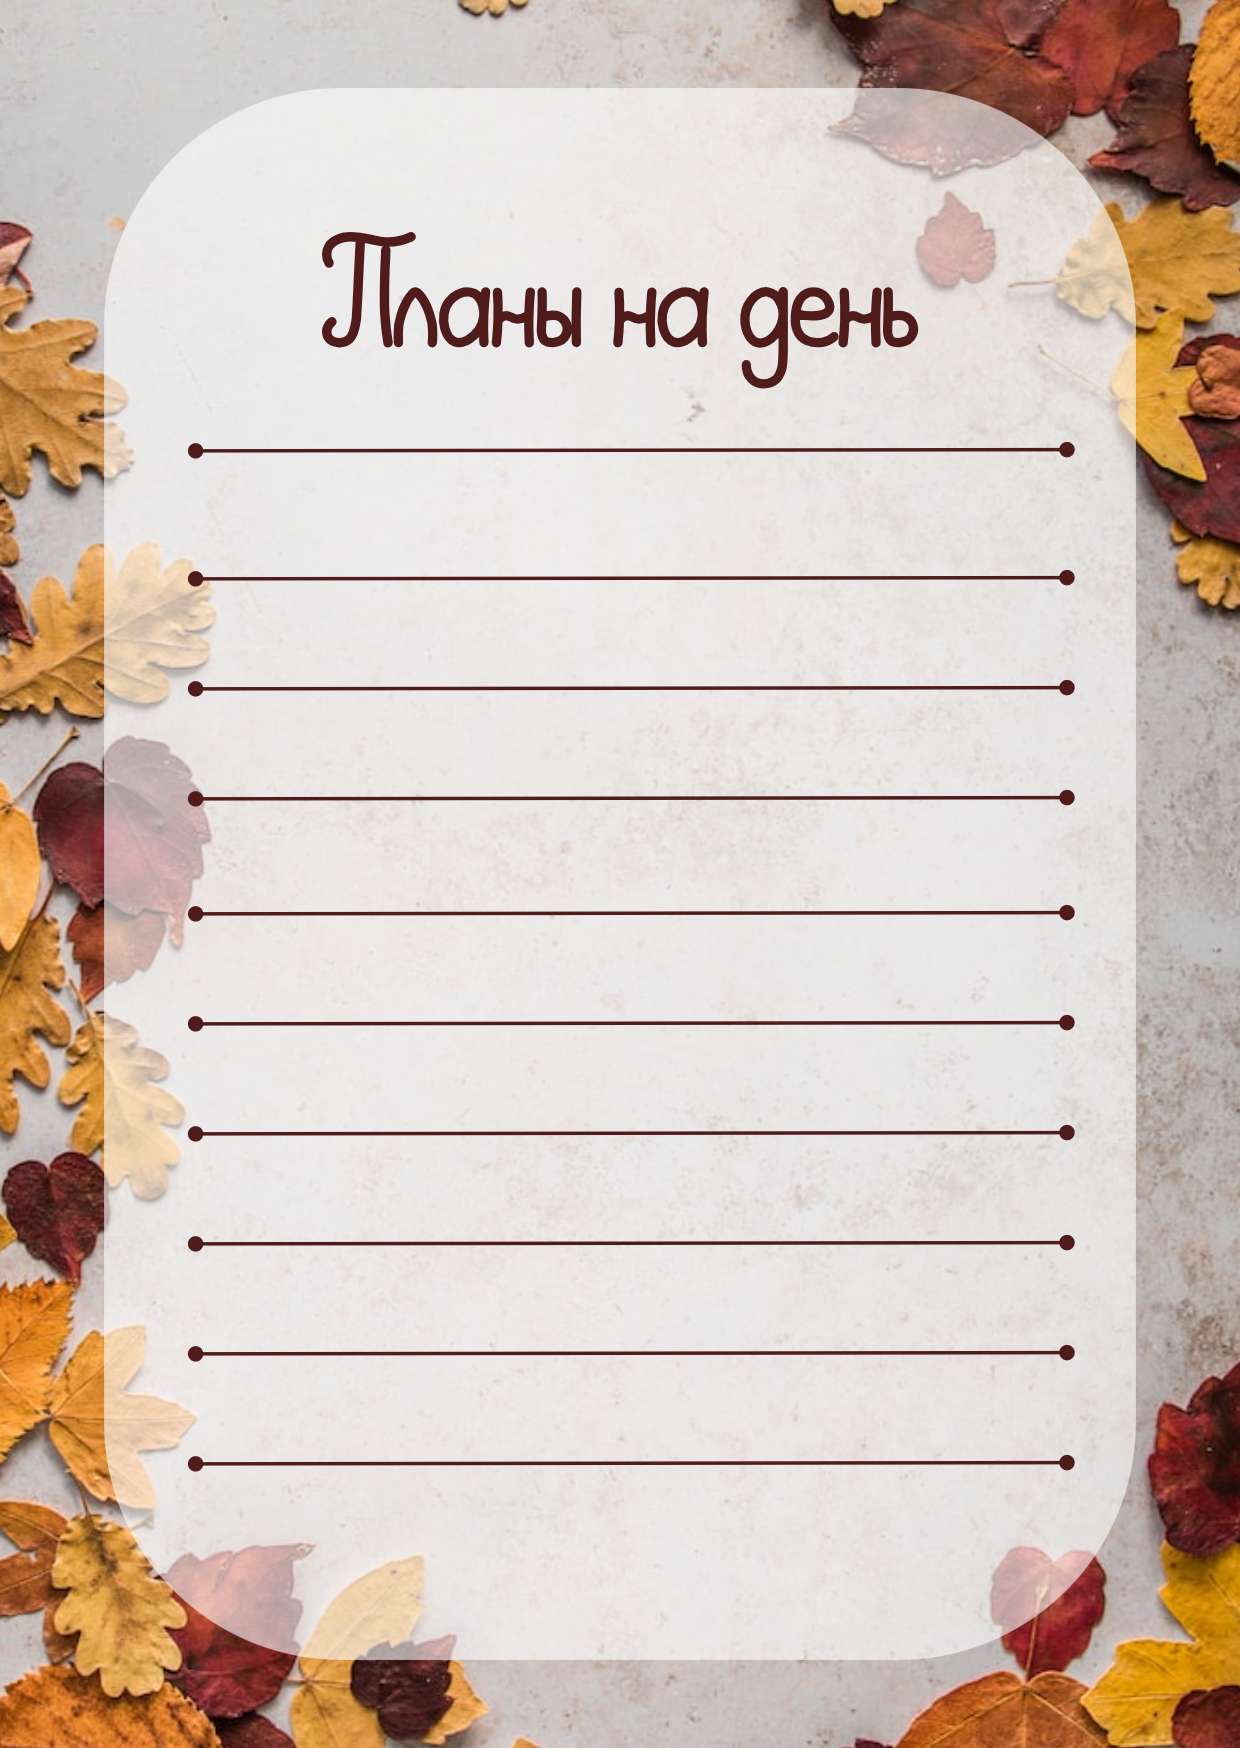 Планы на день